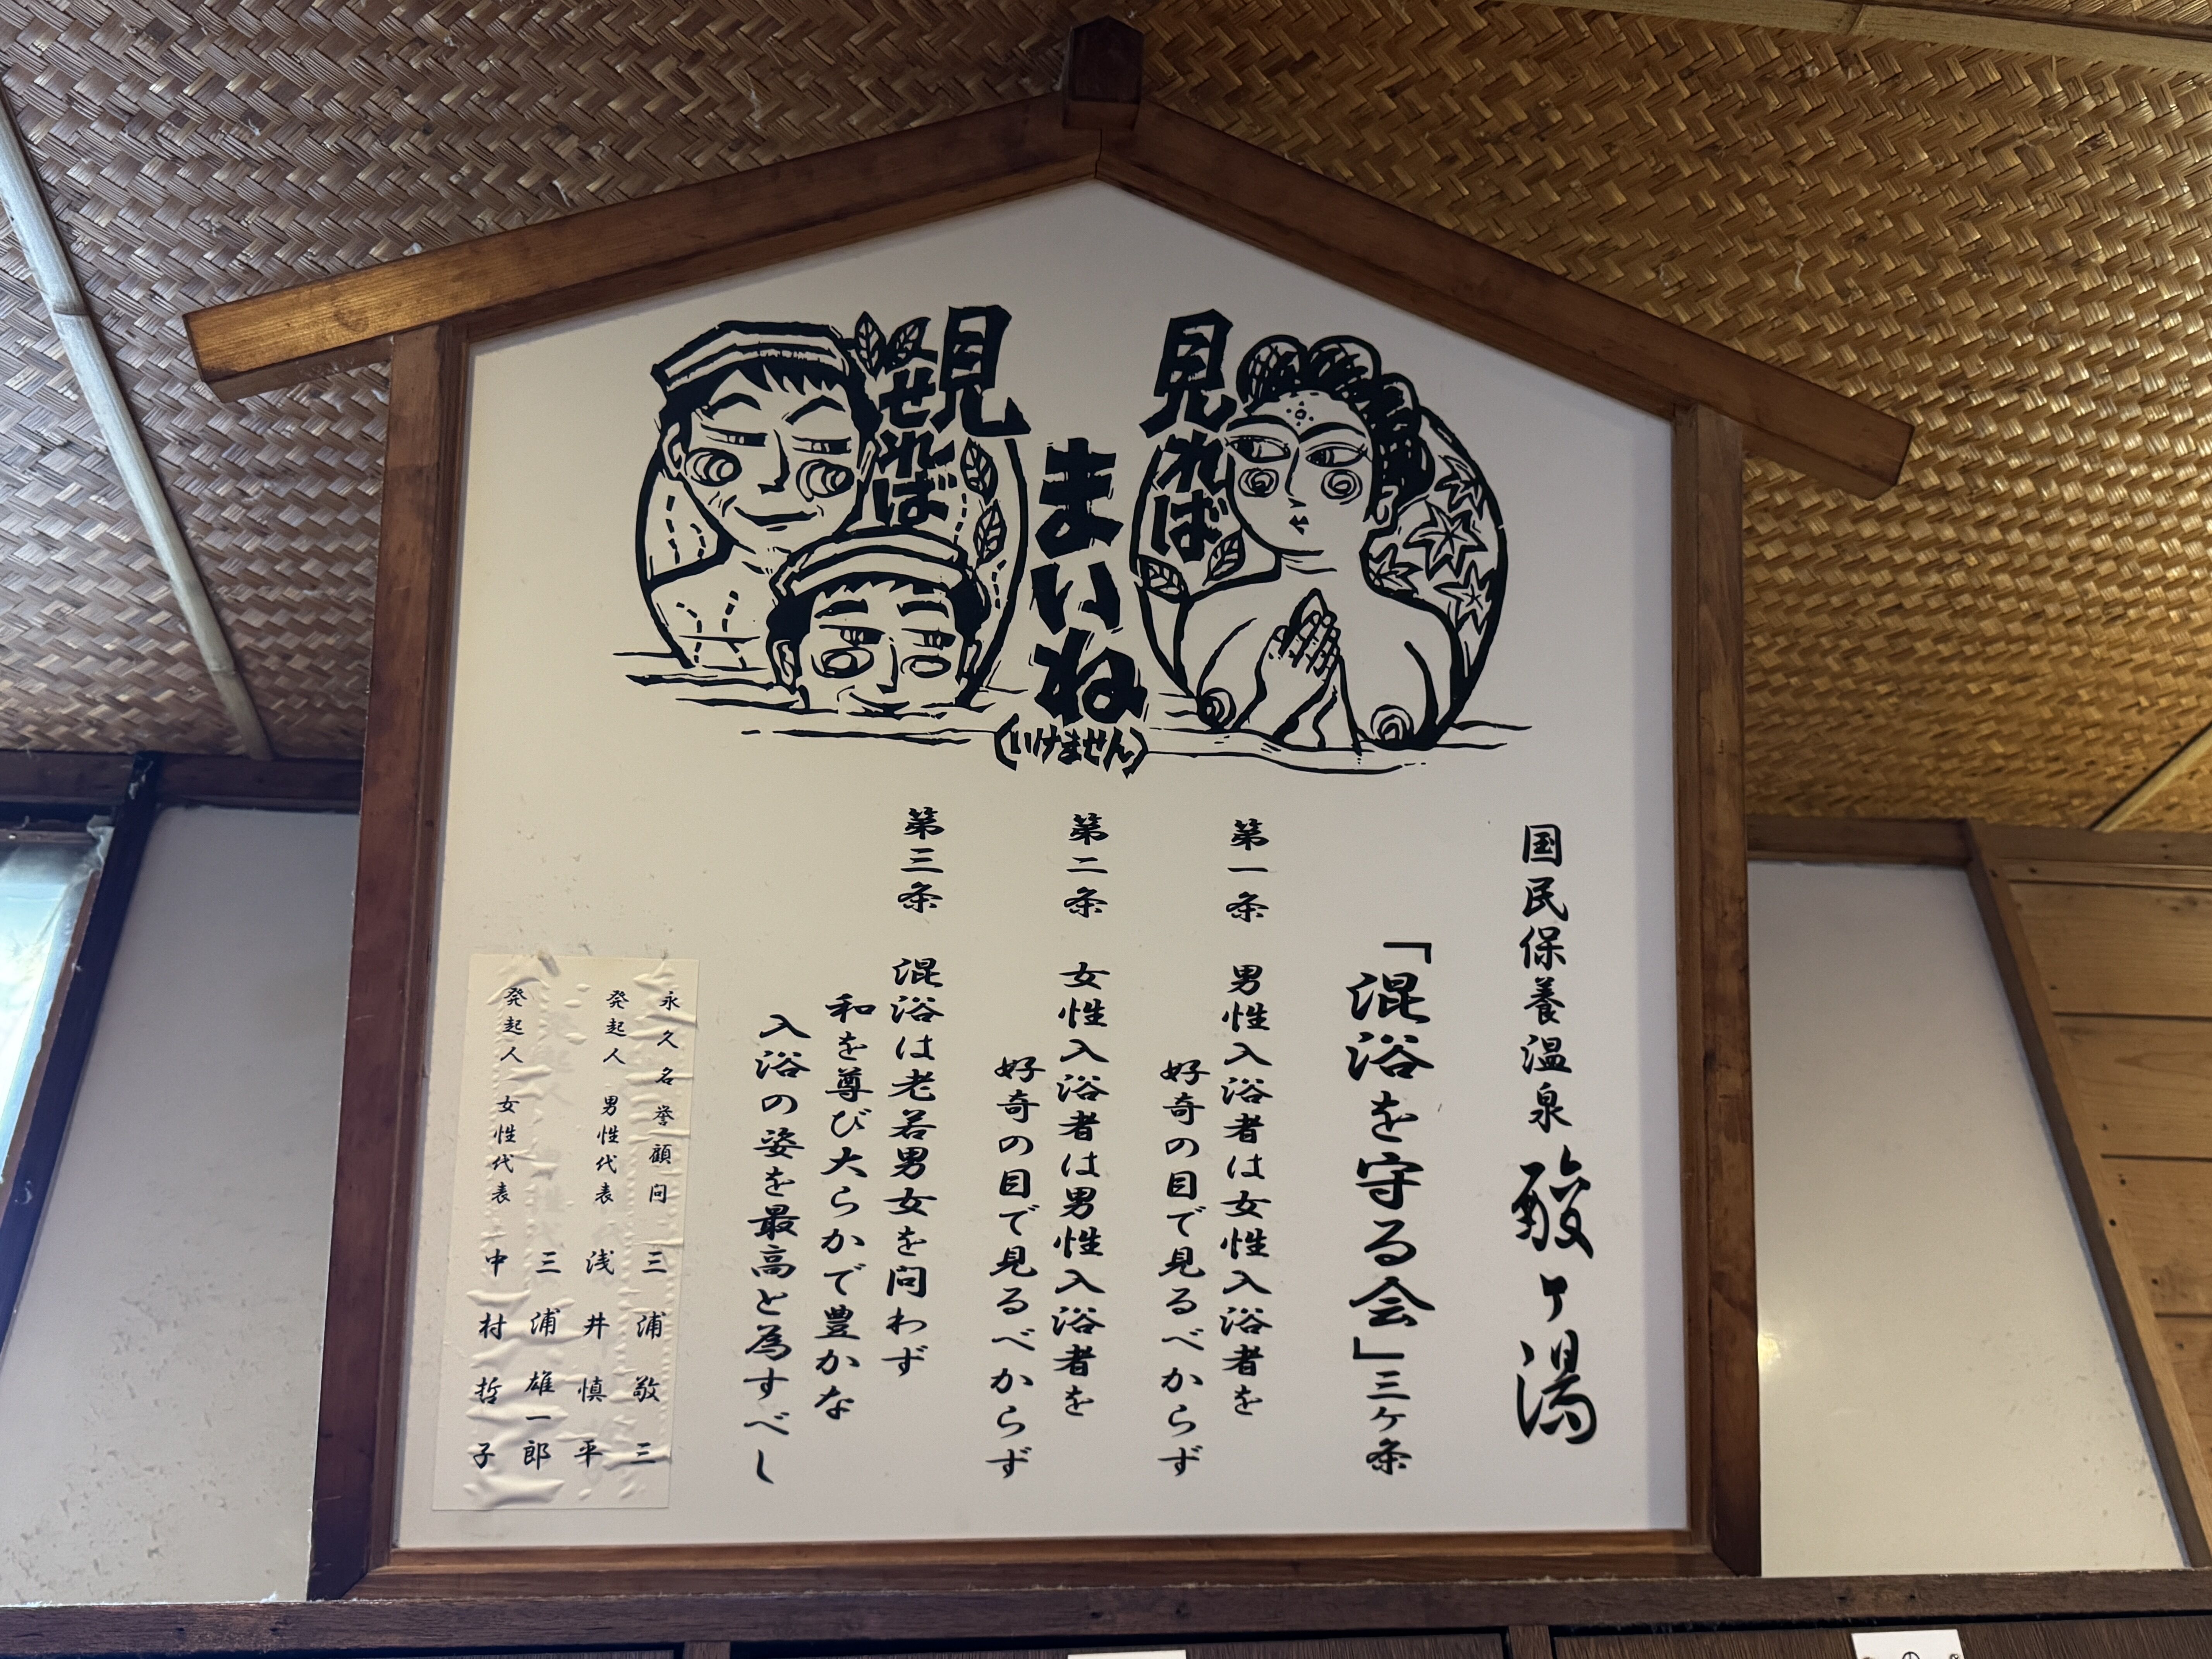 見れば
見せれば
まいね
(いけません)
国民保養温泉 酸ヶ湯
「混浴を守る会」三ヶ条
第一条 男性入浴者は女性入浴者を
好奇の目で見るべからず
第二条 女性入浴者は男性入浴者を
好奇の目で見るべからず
第三条 混浴は老若男女を問わず
和を尊び大らかで豊かな
入浴の姿を最高と為すべし
永久名誉顧問 三浦敬三
発起人 男性代表 浅井慎平
三浦雄一郎
発起人 女性代表 中村哲子